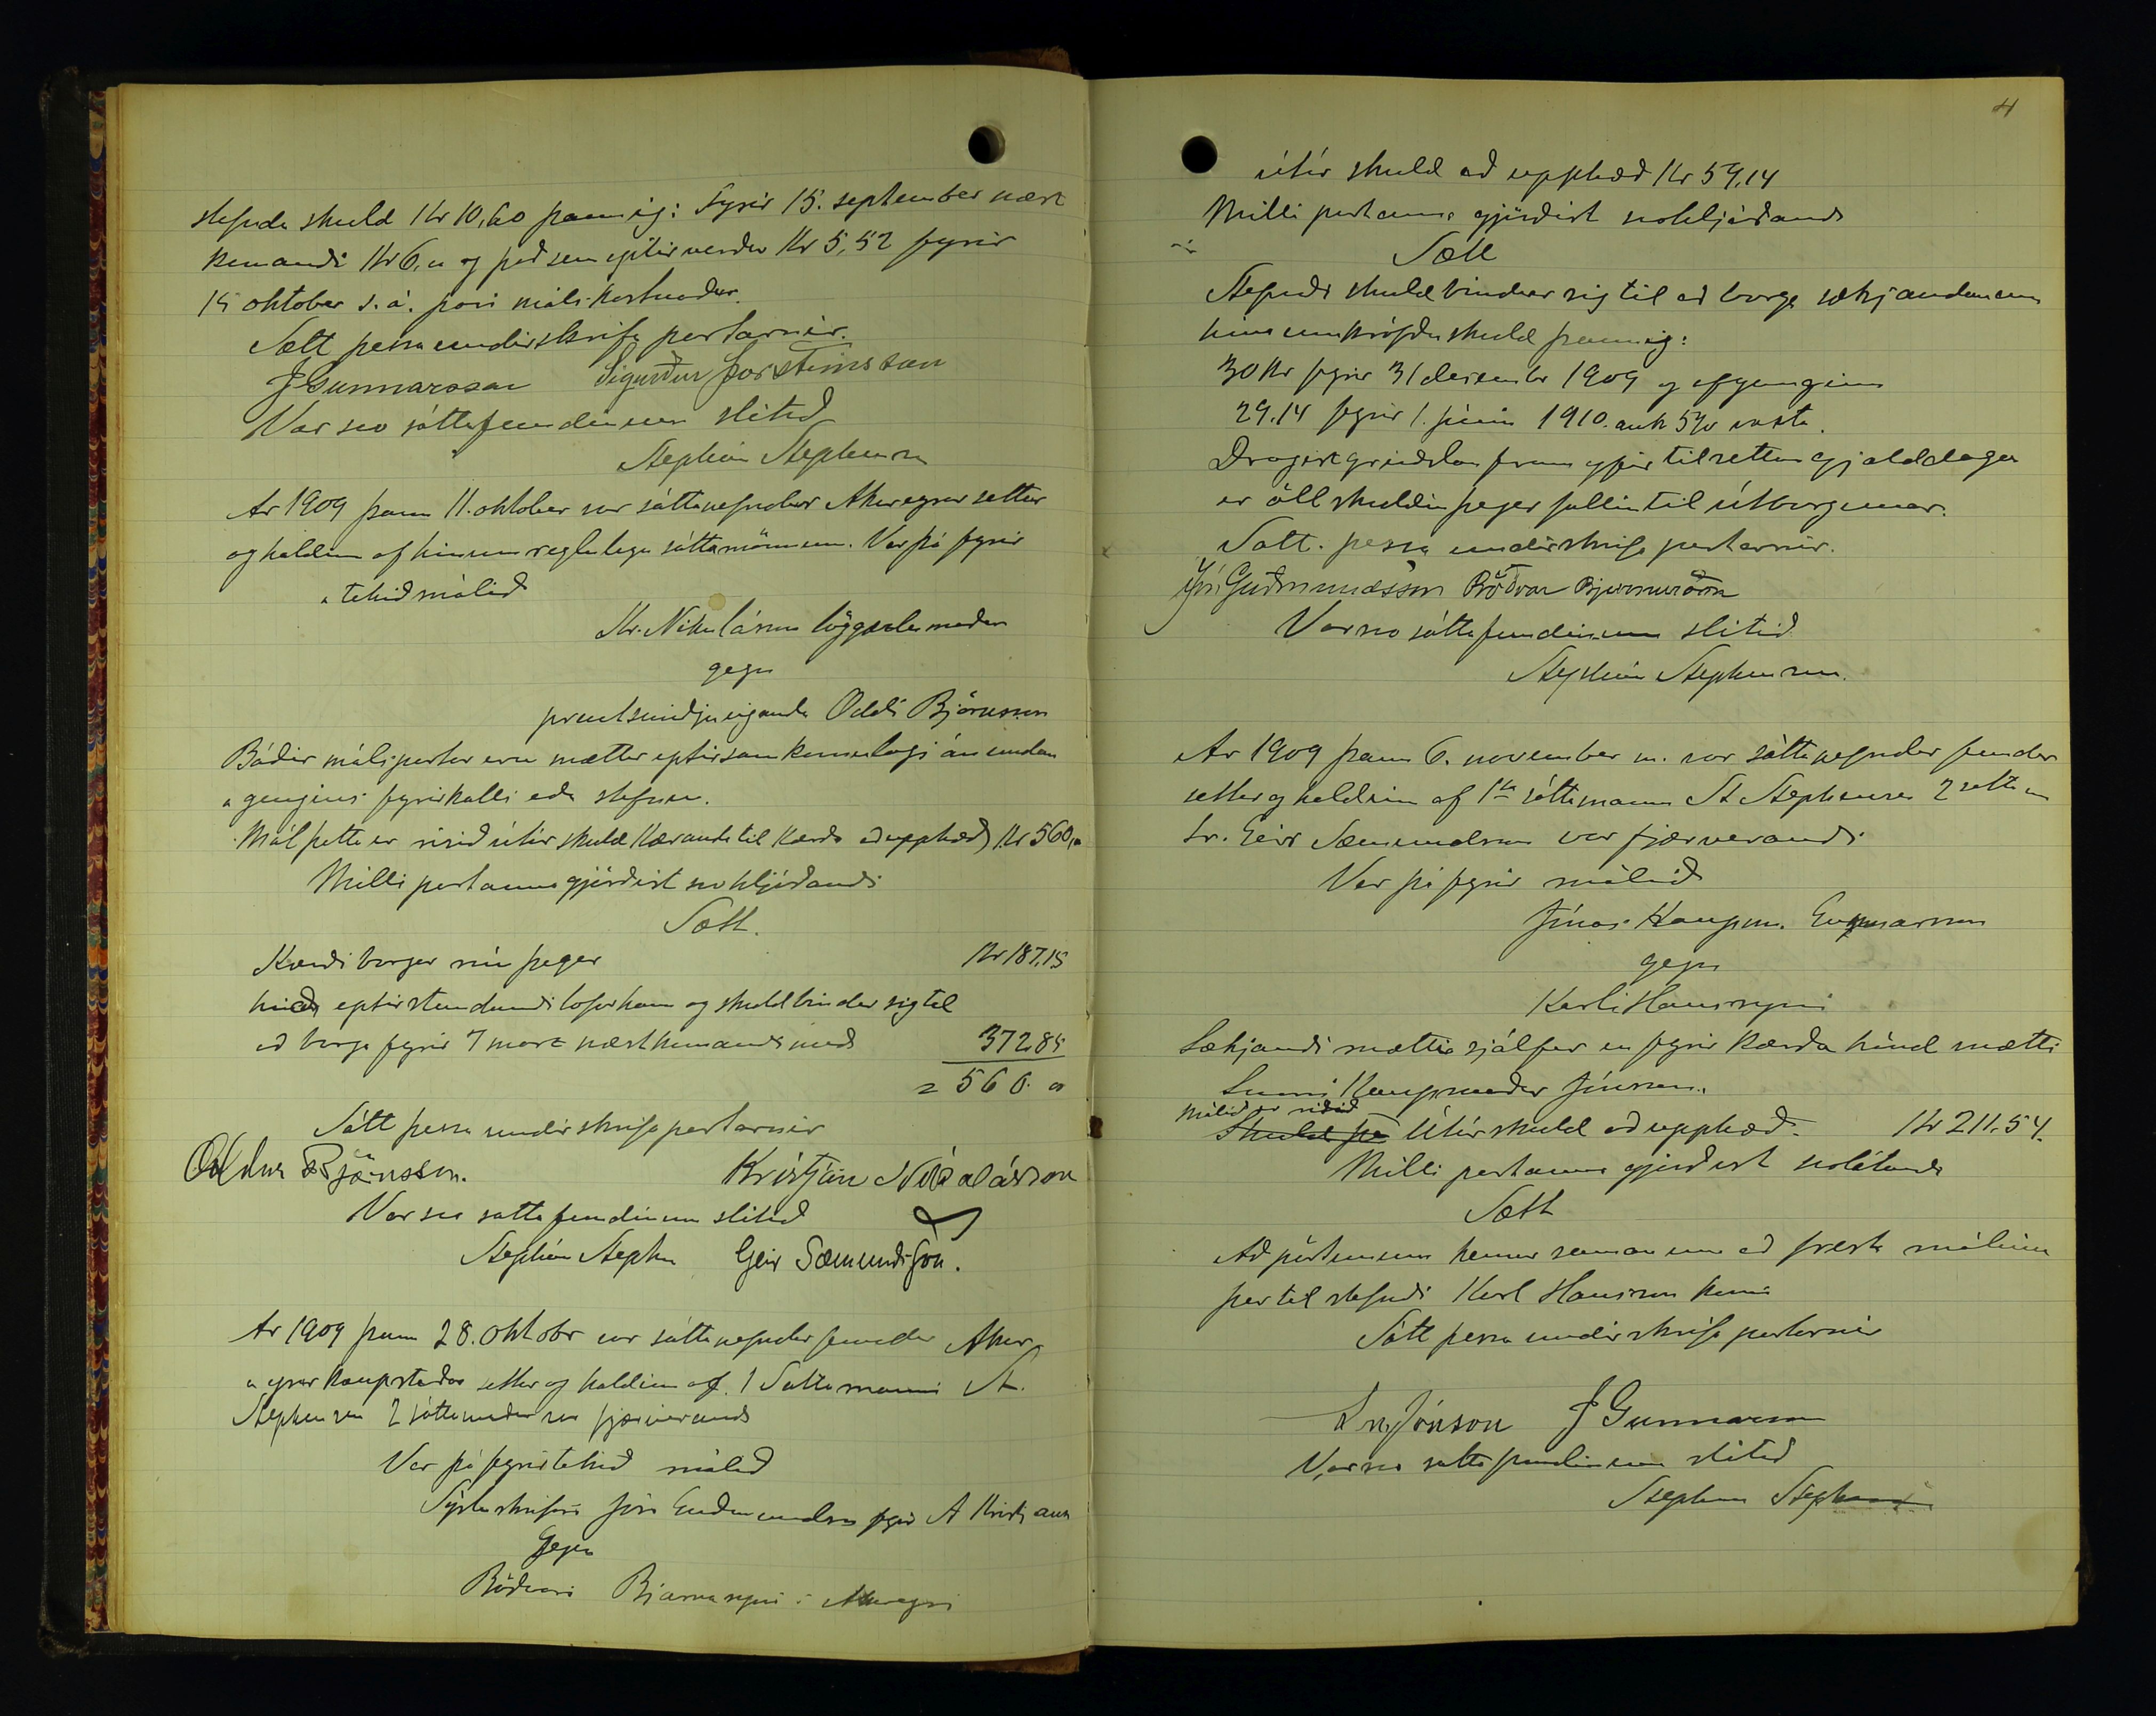 stefnda skuld Kr 10,60 þannig: Fyrir 15. september næst
komandi Kr 6,00 og það sem eptir verður Kr 5,52 fyrir
15 oktober s.á. þar í málskostnaður.
Sætt þessa undirskrifa partarnir.
J Gunnarsson Sigurður Þorsteinsson
Var svo sáttafundinum slitið
Stephán Stephensen
Ár 1909 þann 11. oktober var sáttanefndar Akureyrar settur
og haldinn af hinum reglulegu sáttamönnum. Var þá fyrir
tekið málið
Kr. Nikulásson lögreglumaður
gegn
prentsmiðjueiganda Oddi Björnssyni
Báðir málspartar eru mættir eptir samkomulagi án undan
genginni fyrirkalli eða stefnu.
Mál þetta er risið útúr skuld Kæranda til Kærða að upphæð Kr 560,00
Milli partanna gjörðist svohljóðandi
Sætt.
Kærði borgar nú þegar Kr 187,15
hinar eptirstandandi lofar hann og skuldbindur sig til
að borga fyrir 7 marz næstkomandi með 372,85
= 560.00
Sátt þessa undirskrifa partarnir
Oddur Björnsson. Kristján Nikulásson
Var svo sáttafundinum slitið
Stephán Stephen Geir Sæmundsson.
Ár 1909 þann 28. oktobr var sáttanefndar fundur Akur
eyrar Kaupstaðar settur og haldinn af 1 Sáttamanni St.
Stephensen 2 sáttamaður var fjærverandi
Var þá fyrirtekið málið
Sýsluskrifari Jón Guðmundsson fyrir A Kristjánss
Gegn
Böðvari Bjarnasyni í Akureyri
4
útúr skuld að upphæð Kr 59,14
Milli partanna gjörðist svohljóðandi
Sætt
Stefndi skuldbindur sig til að borga sækjandanum
hina umkröfðu skuld þannig:
30 Kr fyrir 31 desember 1909 og afganginn
29.14 fyrir 1. júní 1910. auk 5% vaxta.
Dragist greiðslan fram yfir tilsettan gjalddaga
er öll skuldin þegar fallin til útborgunar.
Sátt. þessa undirskrifa partarnir.
Jón Guðmundsson Böðvar Bjarnason
Var svo sáttafundinum slitið
Stephán Stephensen.
Ár 1909 þann 6. november m. var sáttanefndar fundur
settur og haldinn af 1ta sáttamanni St Stephensen 2 sátta m
Sr. Geir Sæmundsson var fjærverandi
Var þá fyrir málið
Jónas Kaupm. Gunnarsson
gegn
Karli Hanssyni
Sækjandi mætti sjálfur en fyrir Kærða hönd mætti
Kaupmaður Jónsson.
Málið er risið
Skuld þá Útúr skuld að upphæð Kr 211.54.
Milli partanna gjörðist svolátandi
Sætt
Að pörtunum kemur saman um að fresta málinu
þar til stefndi Karl Hansson kemur
Sátt þessa undirskrifa partarnir
Sn Jónsson J Gunnarsson
Var svo sáttafundinum slitið
Stephán Stephensen